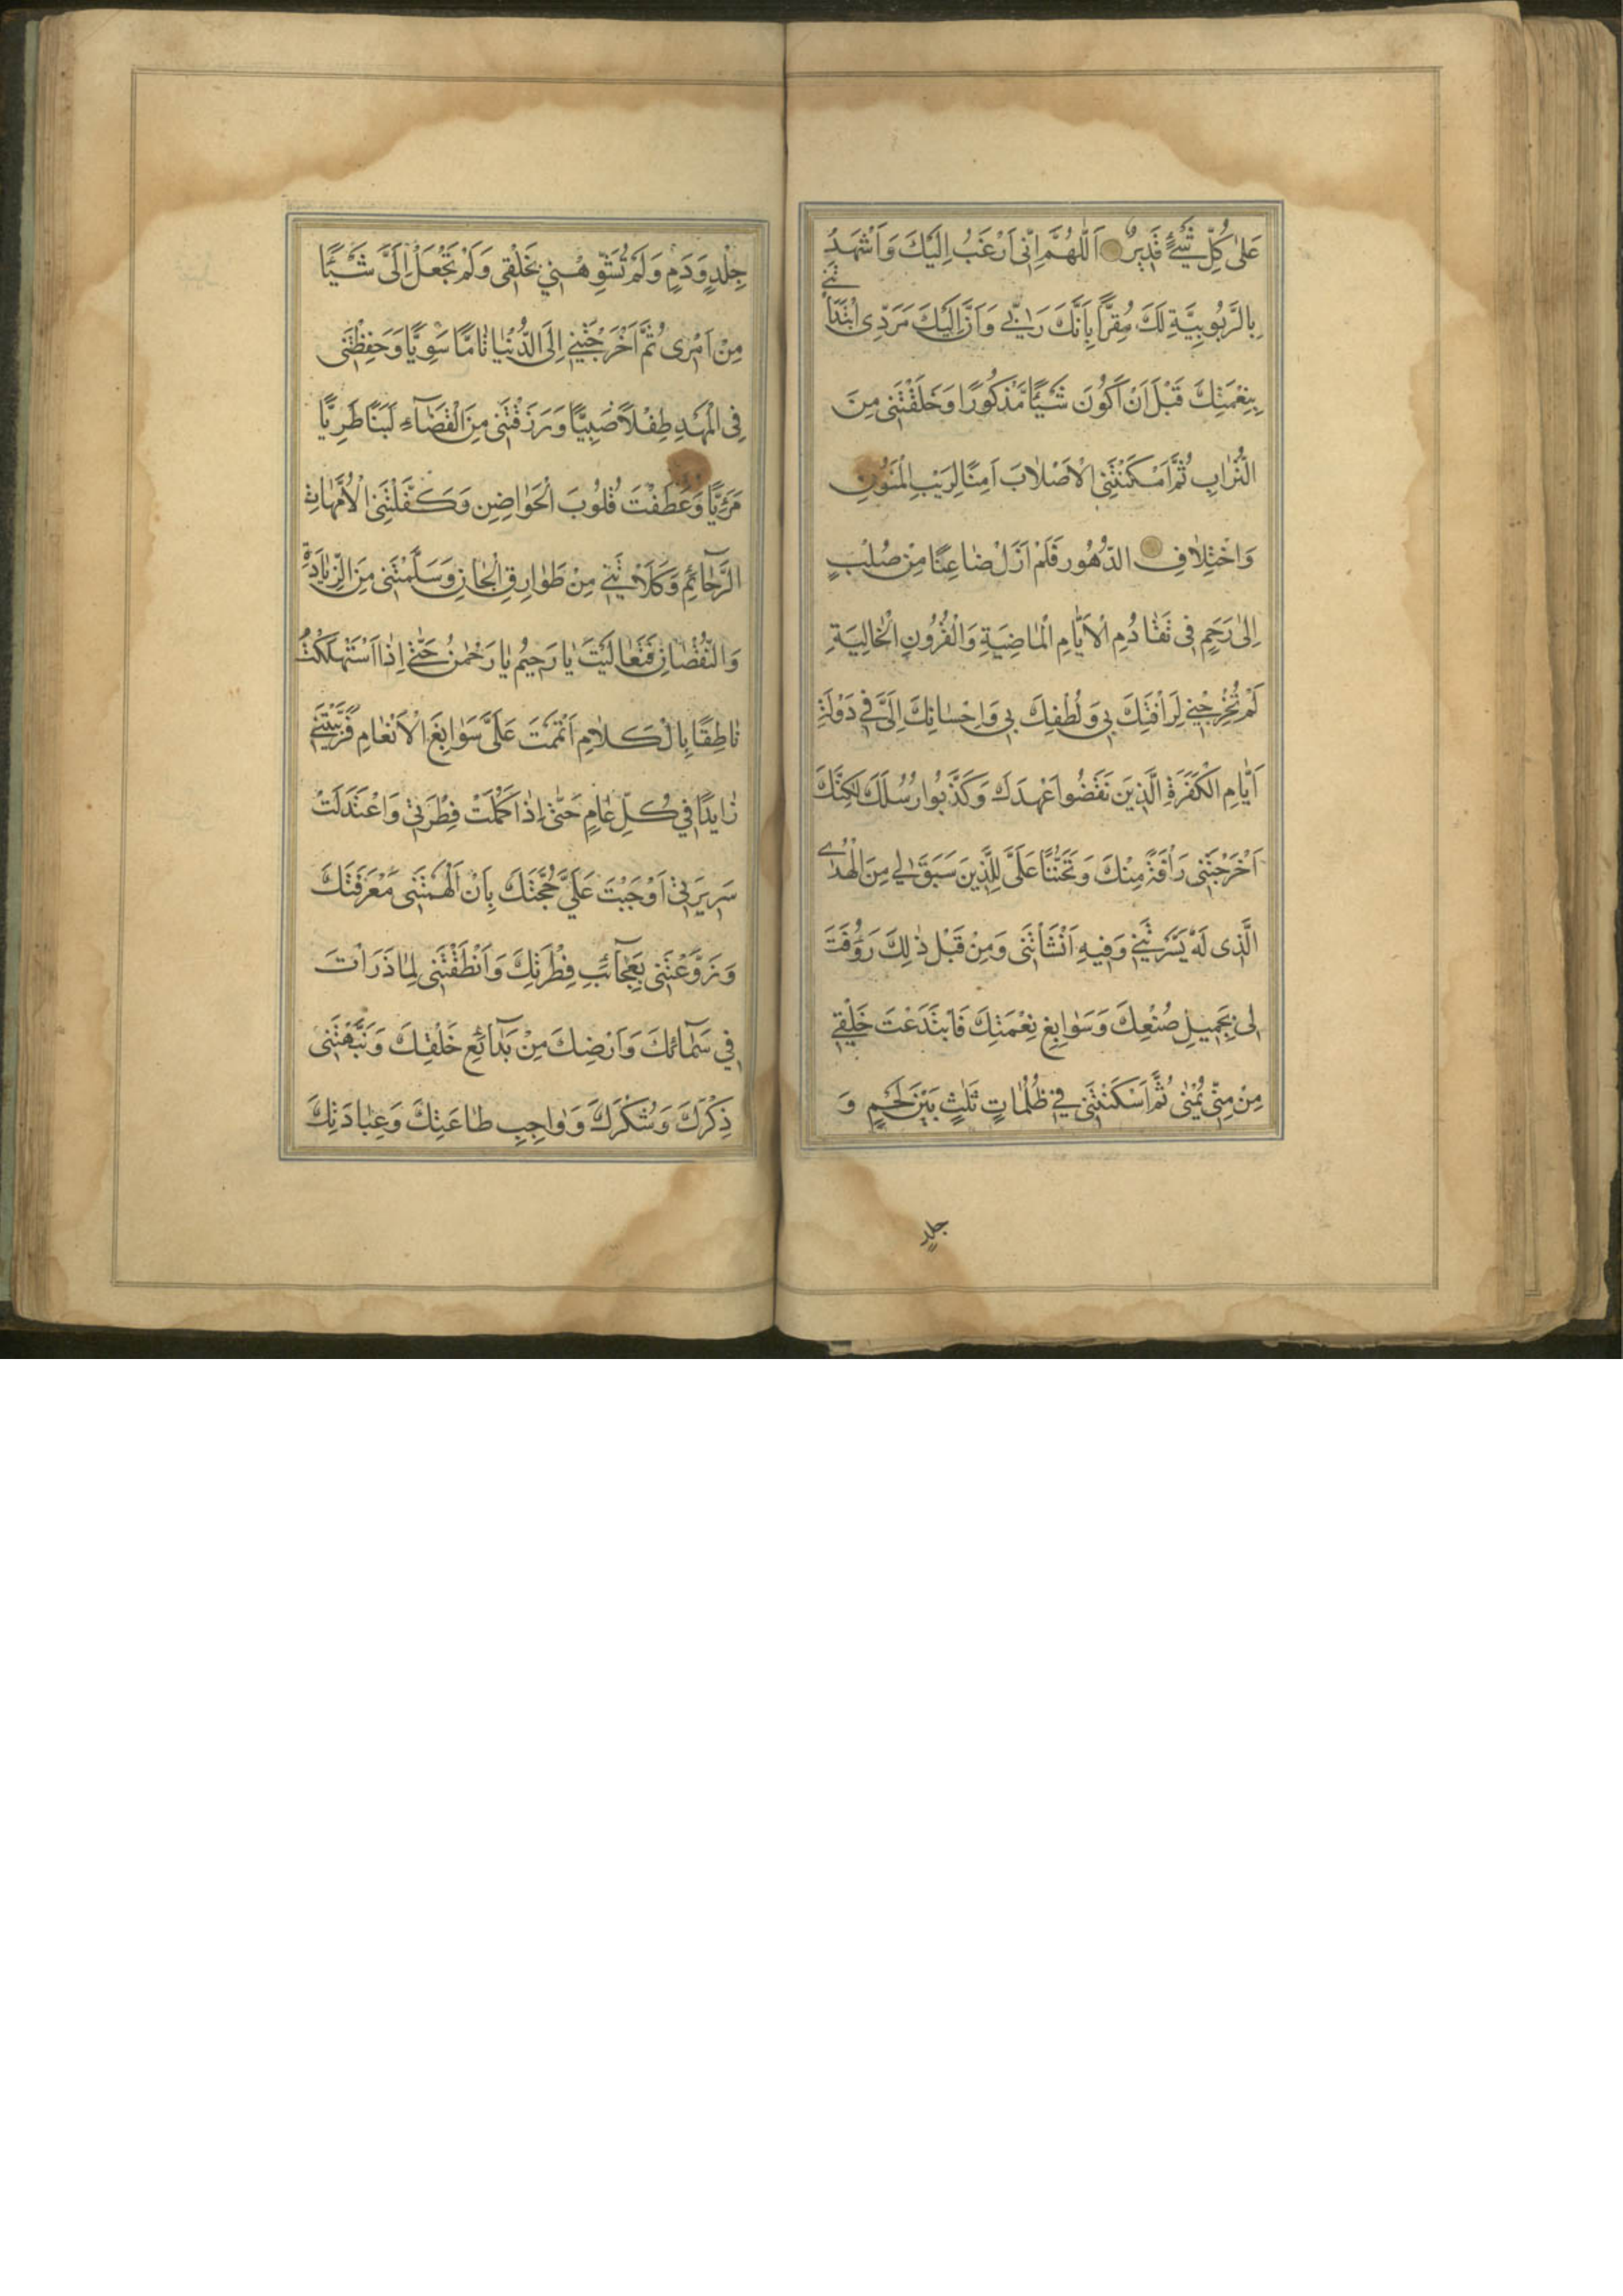 عَلىٰ كُلِّ شَيْءٍ قَدِيرٌ اَللّٰهُمَّ اِنِّى اَرْغَبُ اِلَيْكَ وَاَشْهَدُ
بِالرَّبُوبِيَّةِ لَكَ مُقِرًّا بِاَنَّكَ رَبّٰي وَاَنَّ اِلَيْكَ مَرَدِّى ابْتَدَاْتَنِى
بِنِعْمَتِكَ قَبْلَ اَنْ اَكُونَ شَيْئًا مَذْكُورًا وَخَلَقْتَنِى مِنَ
التُّرٰابِ ثُمَّ اَسْكَنْتَنِى الْاَصْلٰابَ اَمِنًا لِرَيْبِ الْمَنُونِ
وَاخْتِلٰافِ الدُّهُورِ فَلَمْ اَزَلْ ضٰاعِنًا مِنْ صُلْبٍ
اِلىٰ رَحِمٍ فِى تَقٰادُمِ الْاَيّٰامِ الْمٰاضِيَةِ وَالْقُرُونِ الْخٰالِيَةِ
لَمْ تُخْرِجْنِي لِرَاْفَتِكَ بِي وَلُطْفِكَ بِي وَاِحْسٰانِكَ اِلَيَّ فِي دَوْلَةِ
اَيّٰامِ الْكَفَرَةِ الَّذِينَ نَقَضُوا عَهْدَكَ وَكَذَّبُوا رُسُلَكَ لٰكِنَّكَ
اَخْرَجْتَنِى رَاْفَةً مِنْكَ وَتَحَنُّنًا عَلَىَّ لِلَّذِينَ سَبَقَ لِي مِنَ الْهُدٰى
الَّذِى لَهُ يَسَّرْتَنِي وَفِيهِ اَنْشَاْتَنِى وَمِنْ قَبْلِ ذٰلِكَ رَؤُفْتَ
لِى بِجَمِيلِ صُنْعِكَ وَسَوٰابِغِ نِعْمَتِكَ فَابْتَدَعْتَ خَلْقِي
مِنْ مِنِّىٍ يُمْنٰى ثُمَّ اَسْكَنْتَنِى فِي ظُلُمٰاتٍ ثَلٰثٍ بَيْنَ لَحْمٍ وَ
جلدٍ
جِلْدٍ وَدَمٍ وَلَمْ تُشَوِّهْنِي بِخَلْقِى وَلَمْ تَجْعَلْ اِلَىَّ شَيْئًا
مِنْ اَمْرِى ثُمَّ اَخْرَجْتَنِي اِلَى الدُّنْيٰا تٰامًّا سَوِيًّا وَحَفِظْتَنِى
فِى الْمَهْدِ طِفْلًا صَبِيًّا وَرَزَقْتَنِى مِنَ الْفَضٰآءِ لَبَنًا طَرِيًّا
مَرِيًّا وَعَطَفْتَ قُلُوبَ الْحَوٰاضِنِ وَكَفَّلْتَنِى الْاُمَّهٰاتِ
الرَّحٰآئِمِ وَكَلَاْتَنِي مِنْ طَوٰارِقِ الْجٰانِ وَسَلَّمْتَنِى مِنَ الزِّيٰادَةِ
وَالنُّقْصٰانِ فَتَعٰالَيْتَ يٰا رَحِيمُ يٰا رَحْمٰنُ حَتّٰى اِذَا اسْتَهْلَكْتُ
نٰاطِقًا بِالْكَلٰامِ اَتْمَمْتَ عَلَىَّ سَوٰابِغَ الْاَنْعٰامِ فَرَبَّيْتَنِي
زٰايِدًا فِي كُلِّ عٰامٍ حَتّٰى اِذٰا كَمَلَتْ فِطْرَتِي وَاعْتَدَلَتْ
سَرِيرَتِي اَوْجَبْتَ عَلَيَّ حُجَّتَكَ بِاَنْ اَلْهَمْتَنِى مَعْرَفَتَكَ
وَرَوَّعْتَنِى بِعَجٰآئِبِ فِطْرَتِكَ وَاَنْطَقْتَنِى لِمٰا ذَرَاْتَ
فِي سَمٰآئِكَ وَاَرْضِكَ مِنْ بَدٰآئِعِ خَلْقِكَ وَنَبَّهْتَنِى
ذِكْرَكَ وَشُكْرَكَ وَوٰاجِبِ طٰاعَتِكَ وَعِبٰادَتِكَ